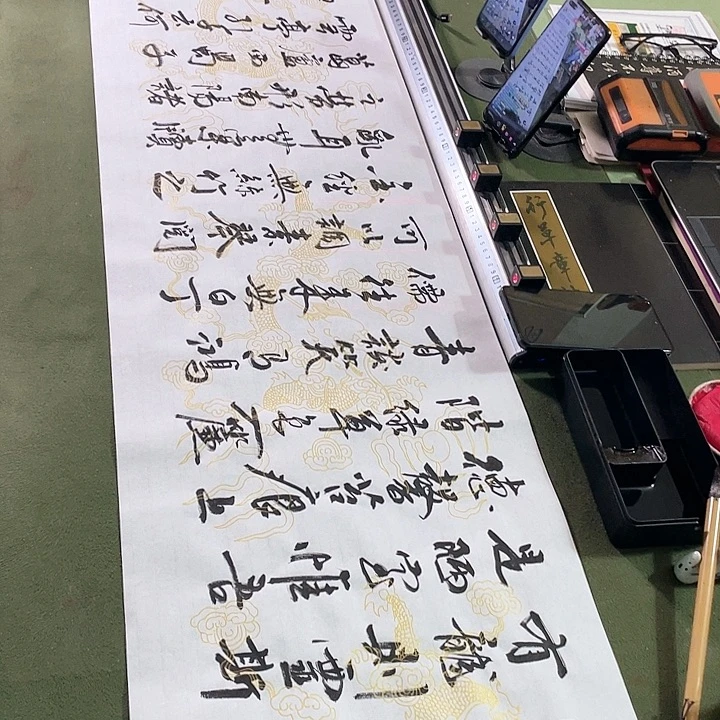 有龍則靈斯
是陋室惟吾
德馨苔痕上
階綠草色入簾
青談笑有鴻
儒往來無白丁
可以調素琴閱
金經無絲竹之
亂耳無案牘
之勞形南陽諸
葛廬西蜀子
雲亭孔子云何
行草章